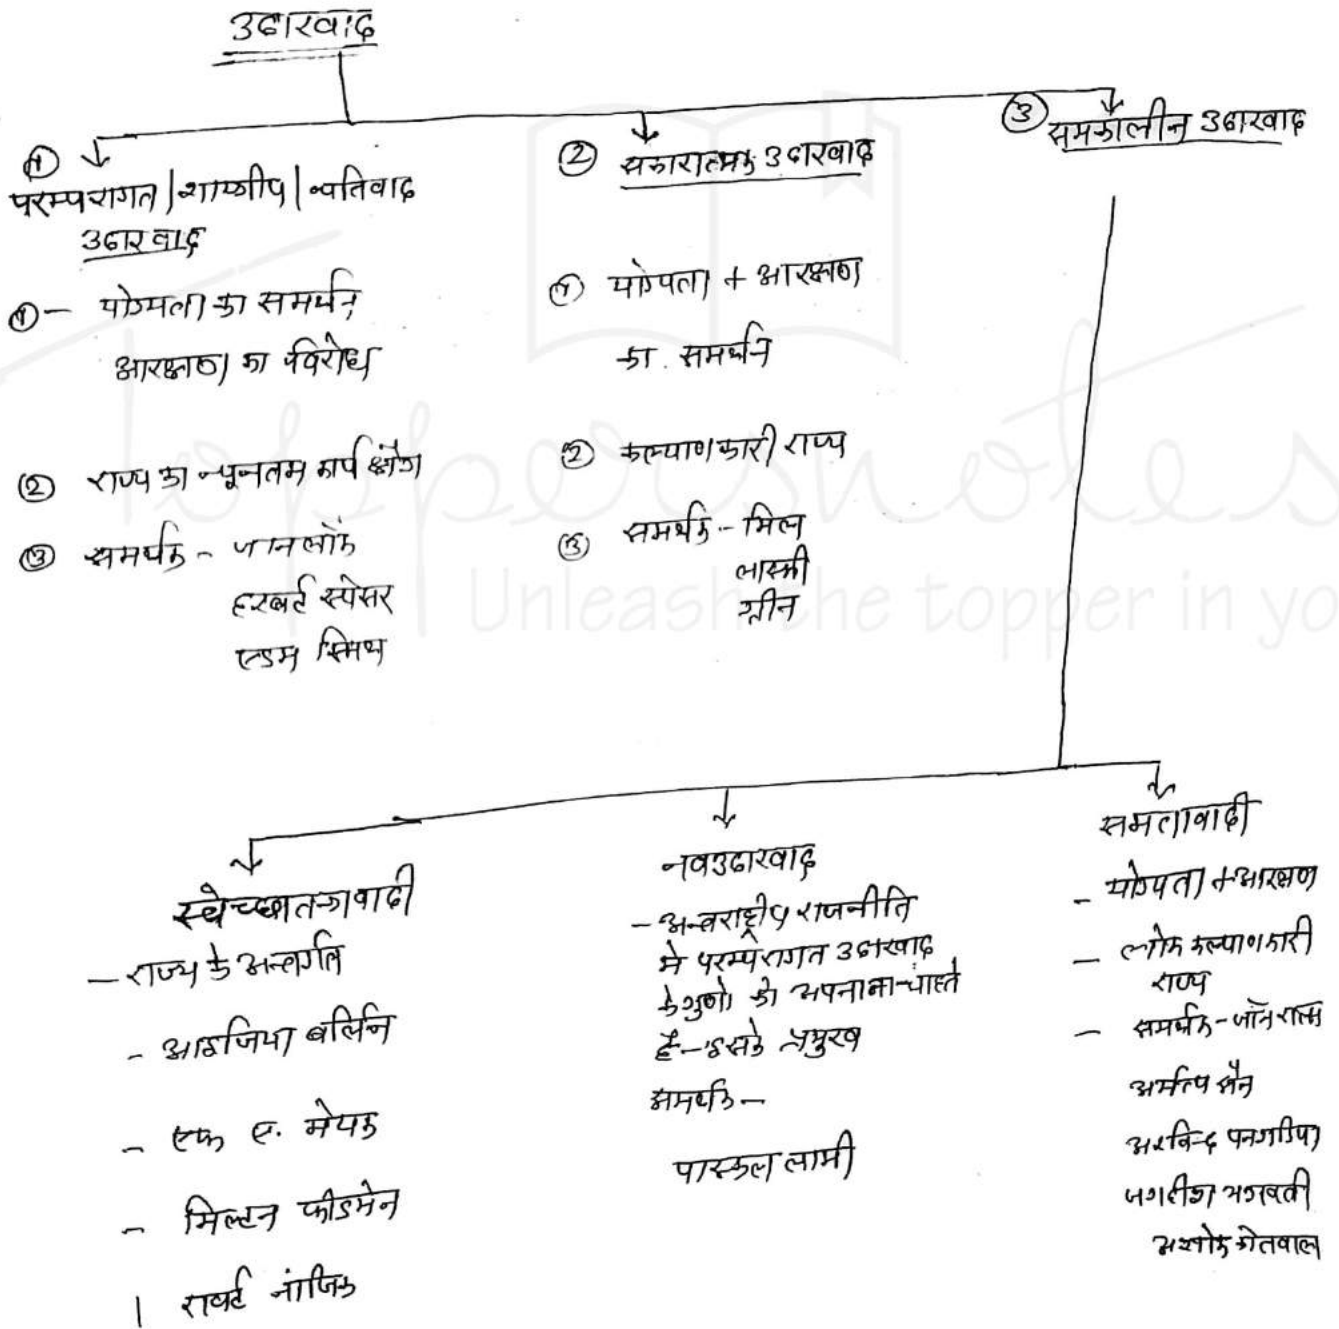 उदारवाद
①
परम्परागत/शास्त्रीय/व्यक्तिवाद
उदारवाद
①- योग्यता का समर्थन,
आरक्षण का विरोध
② राज्य का न्यूनतम कार्य क्षेत्र
③ समर्थक - जान लॉक
हरबर्ट स्पेंसर
एडम स्मिथ
② सकारात्मक उदारवाद
① योग्यता + आरक्षण
का समर्थन
② कल्याणकारी राज्य
③ समर्थक - मिल
लास्की
ग्रीन
③ समकालीन उदारवाद
स्वेच्छातन्त्रवादी
- राज्य के अन्तर्गत
- आइजिया बर्लिन
- एफ ए.
- मिल्टन फ्रीडमेन
| राबर्ट नॉजिक
नवउदारवाद
- अन्तराष्ट्रीय राजनीति
मे परम्परागत उदारवाद
के गुणो को अपनाना चाहते
है - इसके प्रमुख
समर्थक -
पास्कल लामी
समतावादी
- योग्यता + आरक्षण
- लोक कल्याणकारी
राज्य
- समर्थक - जॉन राल्स
अर्मत्य सैन
अरविन्द पनगडिया
जगदीश भगवती
अशोक
Toppersnotes
Unleash the topper in yo